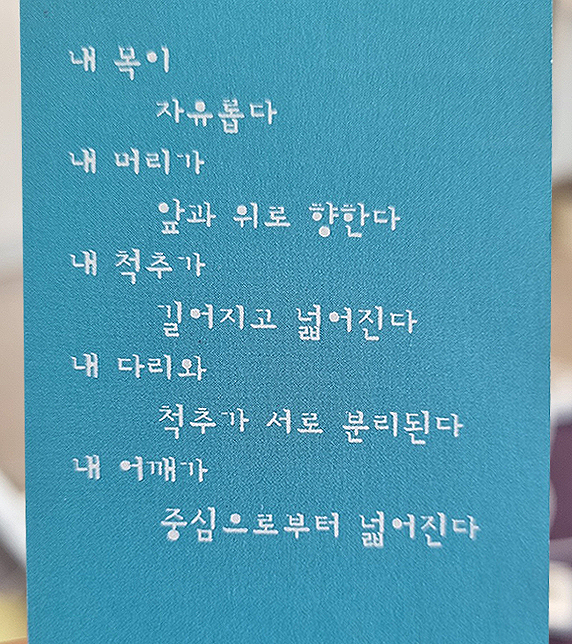 내 목이
자유롭다
내 머리가
앞과 위로 향한다
내 척추가
길어지고 넓어진다
내 다리와
척추가 서로 분리된다
내 어깨가
중심으로부터 넓어진다